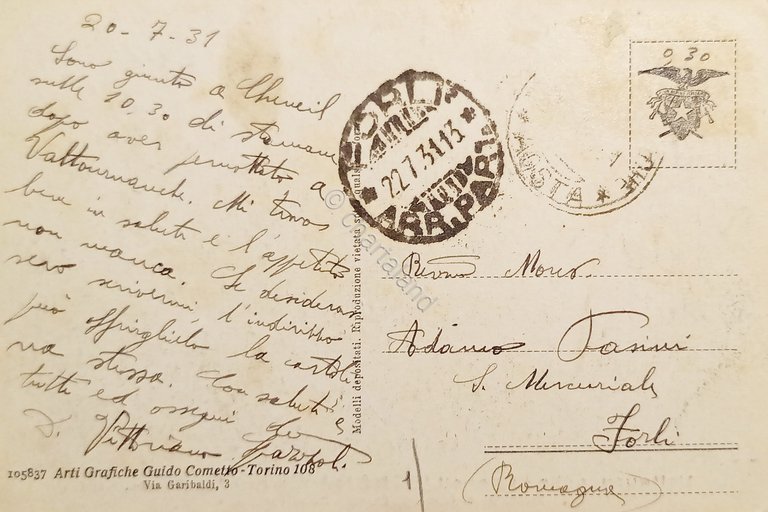 20-7-31
Sono giunto a Cheneil
sulle 10.30 di stamane
dopo aver pernottato a
Valtournanche. Mi trovo
bene in salute e l'appetito
non manca. Se desideran
sero scrivermi, l'indirizzo
può
la cartoli
na stessa. Con saluti a
tutti ed ossequi
D. Vittoriano
105837 Arti Grafiche Guido Cometto - Torino 108
Via Garibaldi, 3
Modelli depositati. Riproduzione vietata
FORLI
22.7.31.13
ARR. PAR
AOSTA
0,30
© Cartaland
Adamo Pasini
S. Mercuriale
Forlì
(Romagna)
1